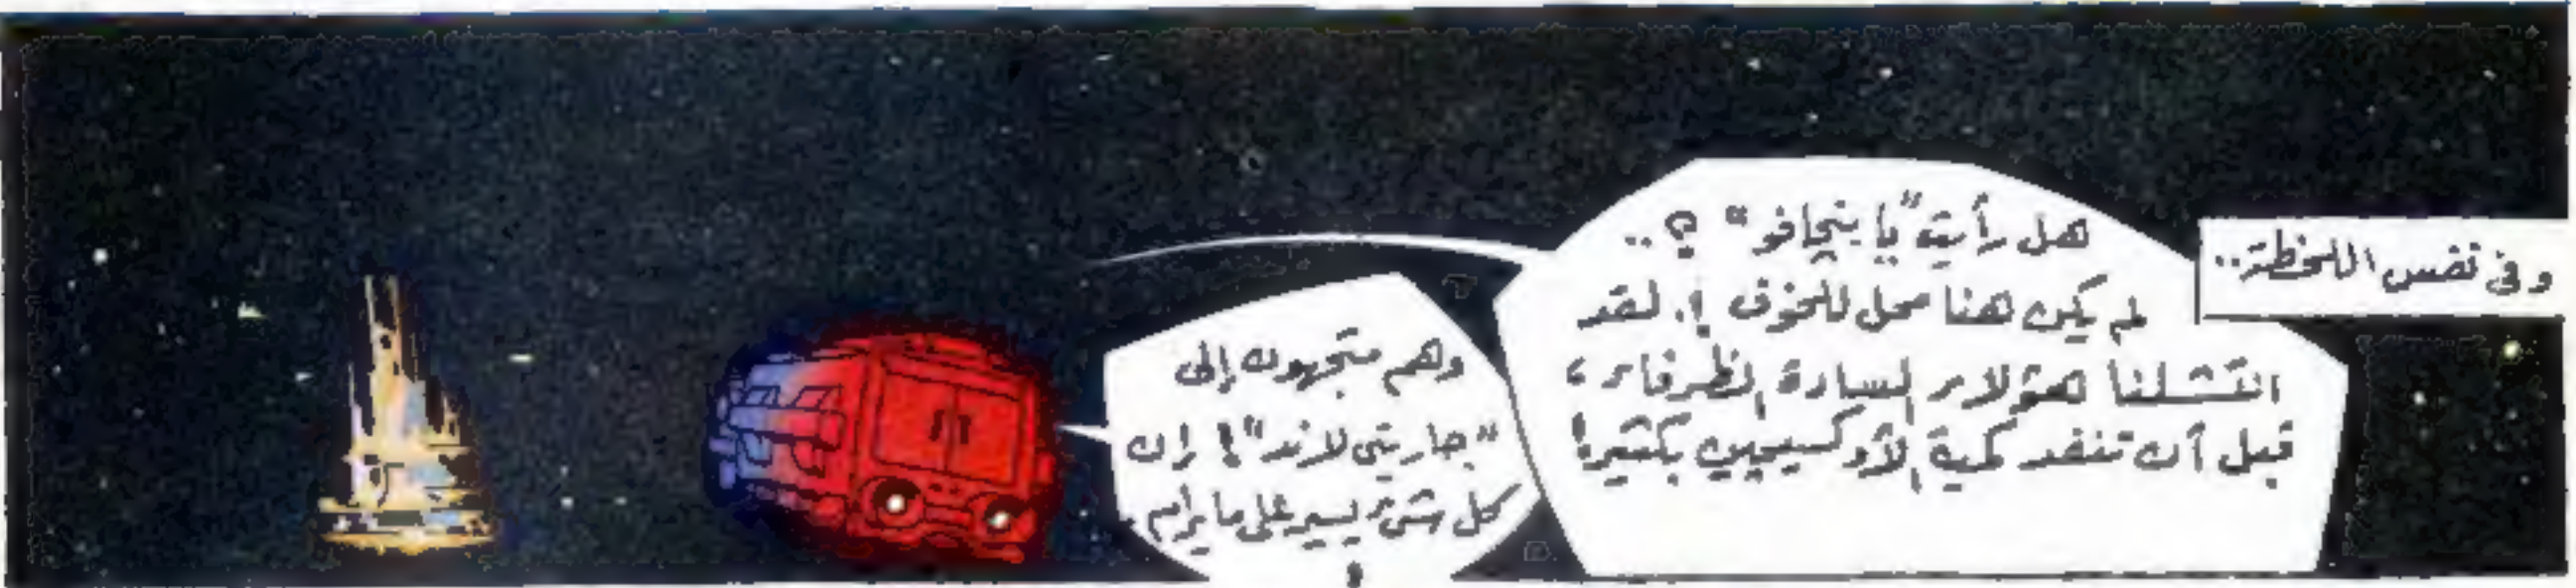 وفى نفس اللحظة..
هل رأيت "يا بنجافو" ؟..
لم يكن هنا محل للخوف !. لقد
انتشلنا هؤلاء السادة الظرفاء ،
قبل أن تنفد كمية الأوكسيجين بكثير!
وهم متجهون إلى
"جاريتى لاند" ! إن
كل شئ يسير على ما يرام
!